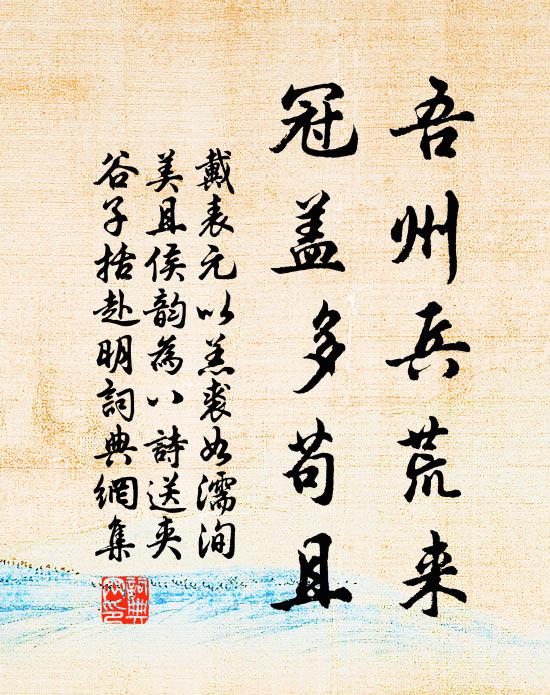 吾州兵荒来
冠盖多苟且
戴表元以羔裘如濡洵
美且侯韵為八詩送夹
谷子括赴明詞典網集